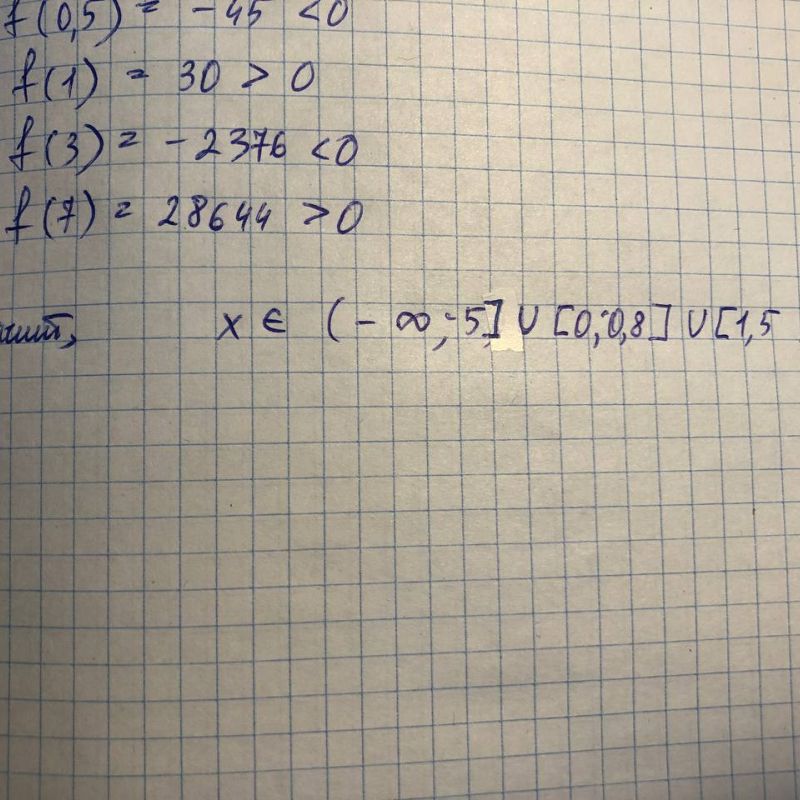 f(0,5) = -45 < 0
f(1) = 30 > 0
f(3) = -2376 < 0
f(7) = 28644 > 0
x ∈ (-∞; -5] ∪ [0; 0,8] ∪ [1,5